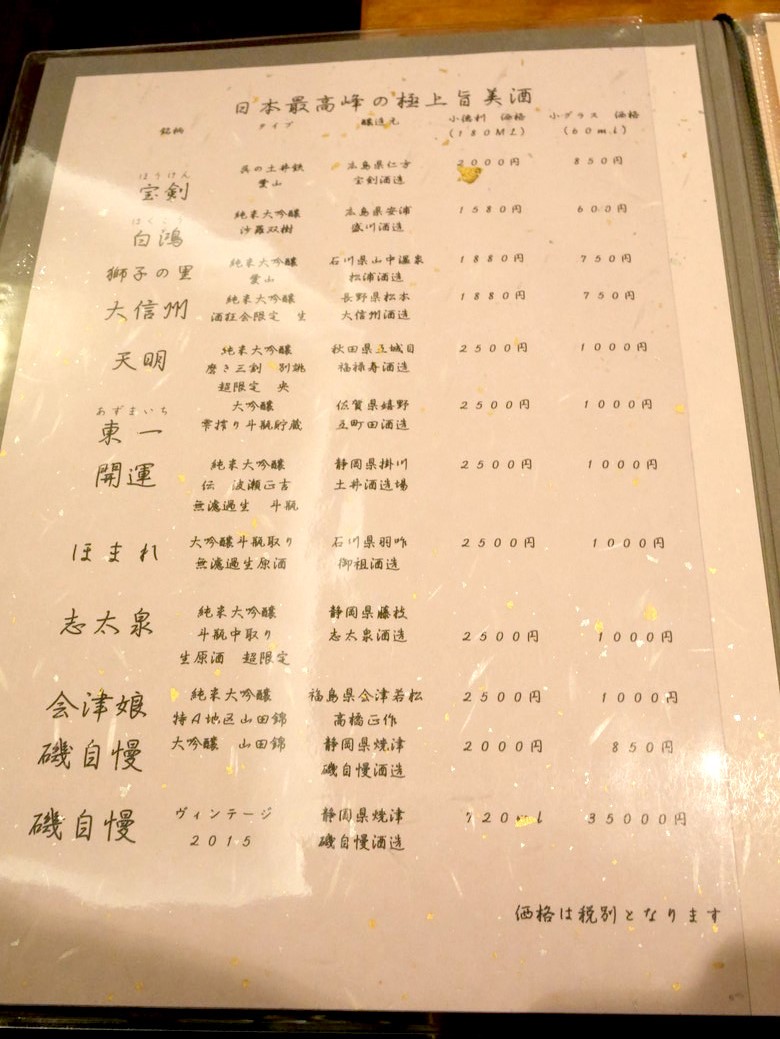 日本最高峰の極上旨美酒
銘柄 タイプ 醸造元 小徳利 価格 小グラス 価格
(180ML) (60ml)
ほうけん 呉の土井鉄 広島県仁方 2000円 850円
宝剣 葉山 宝剣酒造
はくこう 純米大吟醸 広島県安浦 1580円 600円
白鴻 沙羅双樹 盛川酒造
獅子の里 純米大吟醸 石川県山中温泉 1880円 750円
葉山 松浦酒造
大信州 純米大吟醸 長野県松本 1880円 750円
酒狂会限定 生 大信州酒造
天明 純米大吟醸 秋田県五城目 2500円 1000円
磨き三割 別誂 福禄寿酒造
超限定 央
あずまいち 大吟醸 佐賀県嬉野 2500円 1000円
東一 雫搾り斗瓶貯蔵 五町田酒造
開運 純米大吟醸 静岡県掛川 2500円 1000円
伝 波瀬正吉 土井酒造場
無濾過生 斗瓶
ほまれ 大吟醸斗瓶取り 石川県羽咋 2500円 1000円
無濾過生原酒 御祖酒造
志太泉 純米大吟醸 静岡県藤枝
斗瓶中取り 志太泉酒造 2500円 1000円
生原酒 超限定
会津娘 純米大吟醸 福島県会津若松 2500円 1000円
特A地区山田錦 高橋正作
磯自慢 大吟醸 山田錦 静岡県焼津 2000円 850円
磯自慢酒造
磯自慢 ヴィンテージ 静岡県焼津 720ml 35000円
2015 磯自慢酒造
価格は税別となります